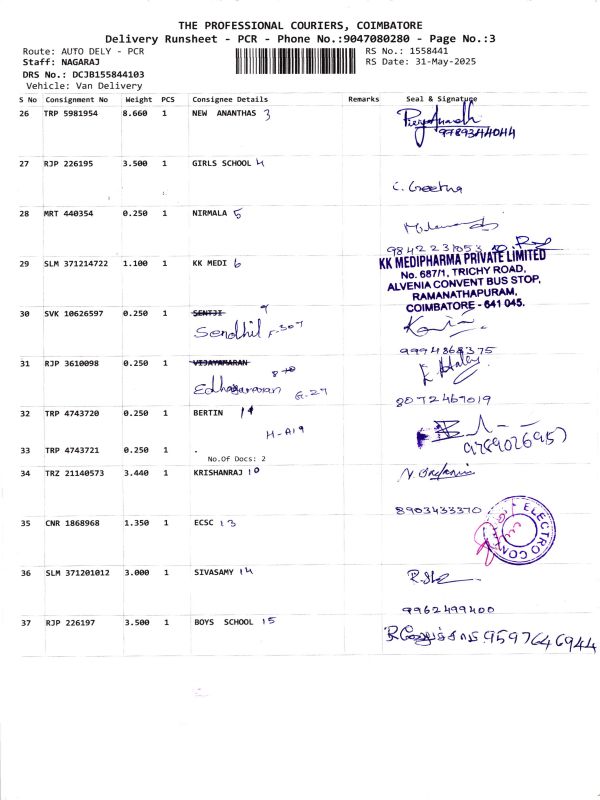 THE PROFESSIONAL COURIERS, COIMBATORE
Delivery Runsheet - PCR - Phone No.:9047080280 - Page No.:3
Route: AUTO DELY - PCR RS No.: 1558441
Staff: NAGARAJ RS Date: 31-May-2025
DRS No.: DCJB155844103
Vehicle: Van Delivery
S No Consignment No Weight PCS Consignee Details Remarks Seal & Signature
26 TRP 5981954 8.660 1 NEW ANANTHAS 3
9789344044
27 RJP 226195 3.500 1 GIRLS SCHOOL 4
C. Geetha
28 MRT 440354 0.250 1 NIRMALA 5
9842231053
29 SLM 371214722 1.100 1 KK MEDI 6
KK MEDIPHARMA PRIVATE LIMITED
No. 687/1, TRICHY ROAD,
ALVENIA CONVENT BUS STOP,
RAMANATHAPURAM,
COIMBATORE - 641 045.
30 SVK 10626597 0.250 1 SENTJI
Sendhil F-307
9994868375
31 RJP 3610098 0.250 1 VIJAYAMARAN
G-27
8072467019
32 TRP 4743720 0.250 1 BERTIN
H-A19
9789026957
33 TRP 4743721 0.250 1 .
No.Of Docs: 2
34 TRZ 21140573 3.440 1 KRISHANRAJ 10
8903433370
35 CNR 1868968 1.350 1 ECSC 13
ELECTRO CON
36 SLM 371201012 3.000 1 SIVASAMY 14
9962499400
37 RJP 226197 3.500 1 BOYS SCHOOL 15
9597646944